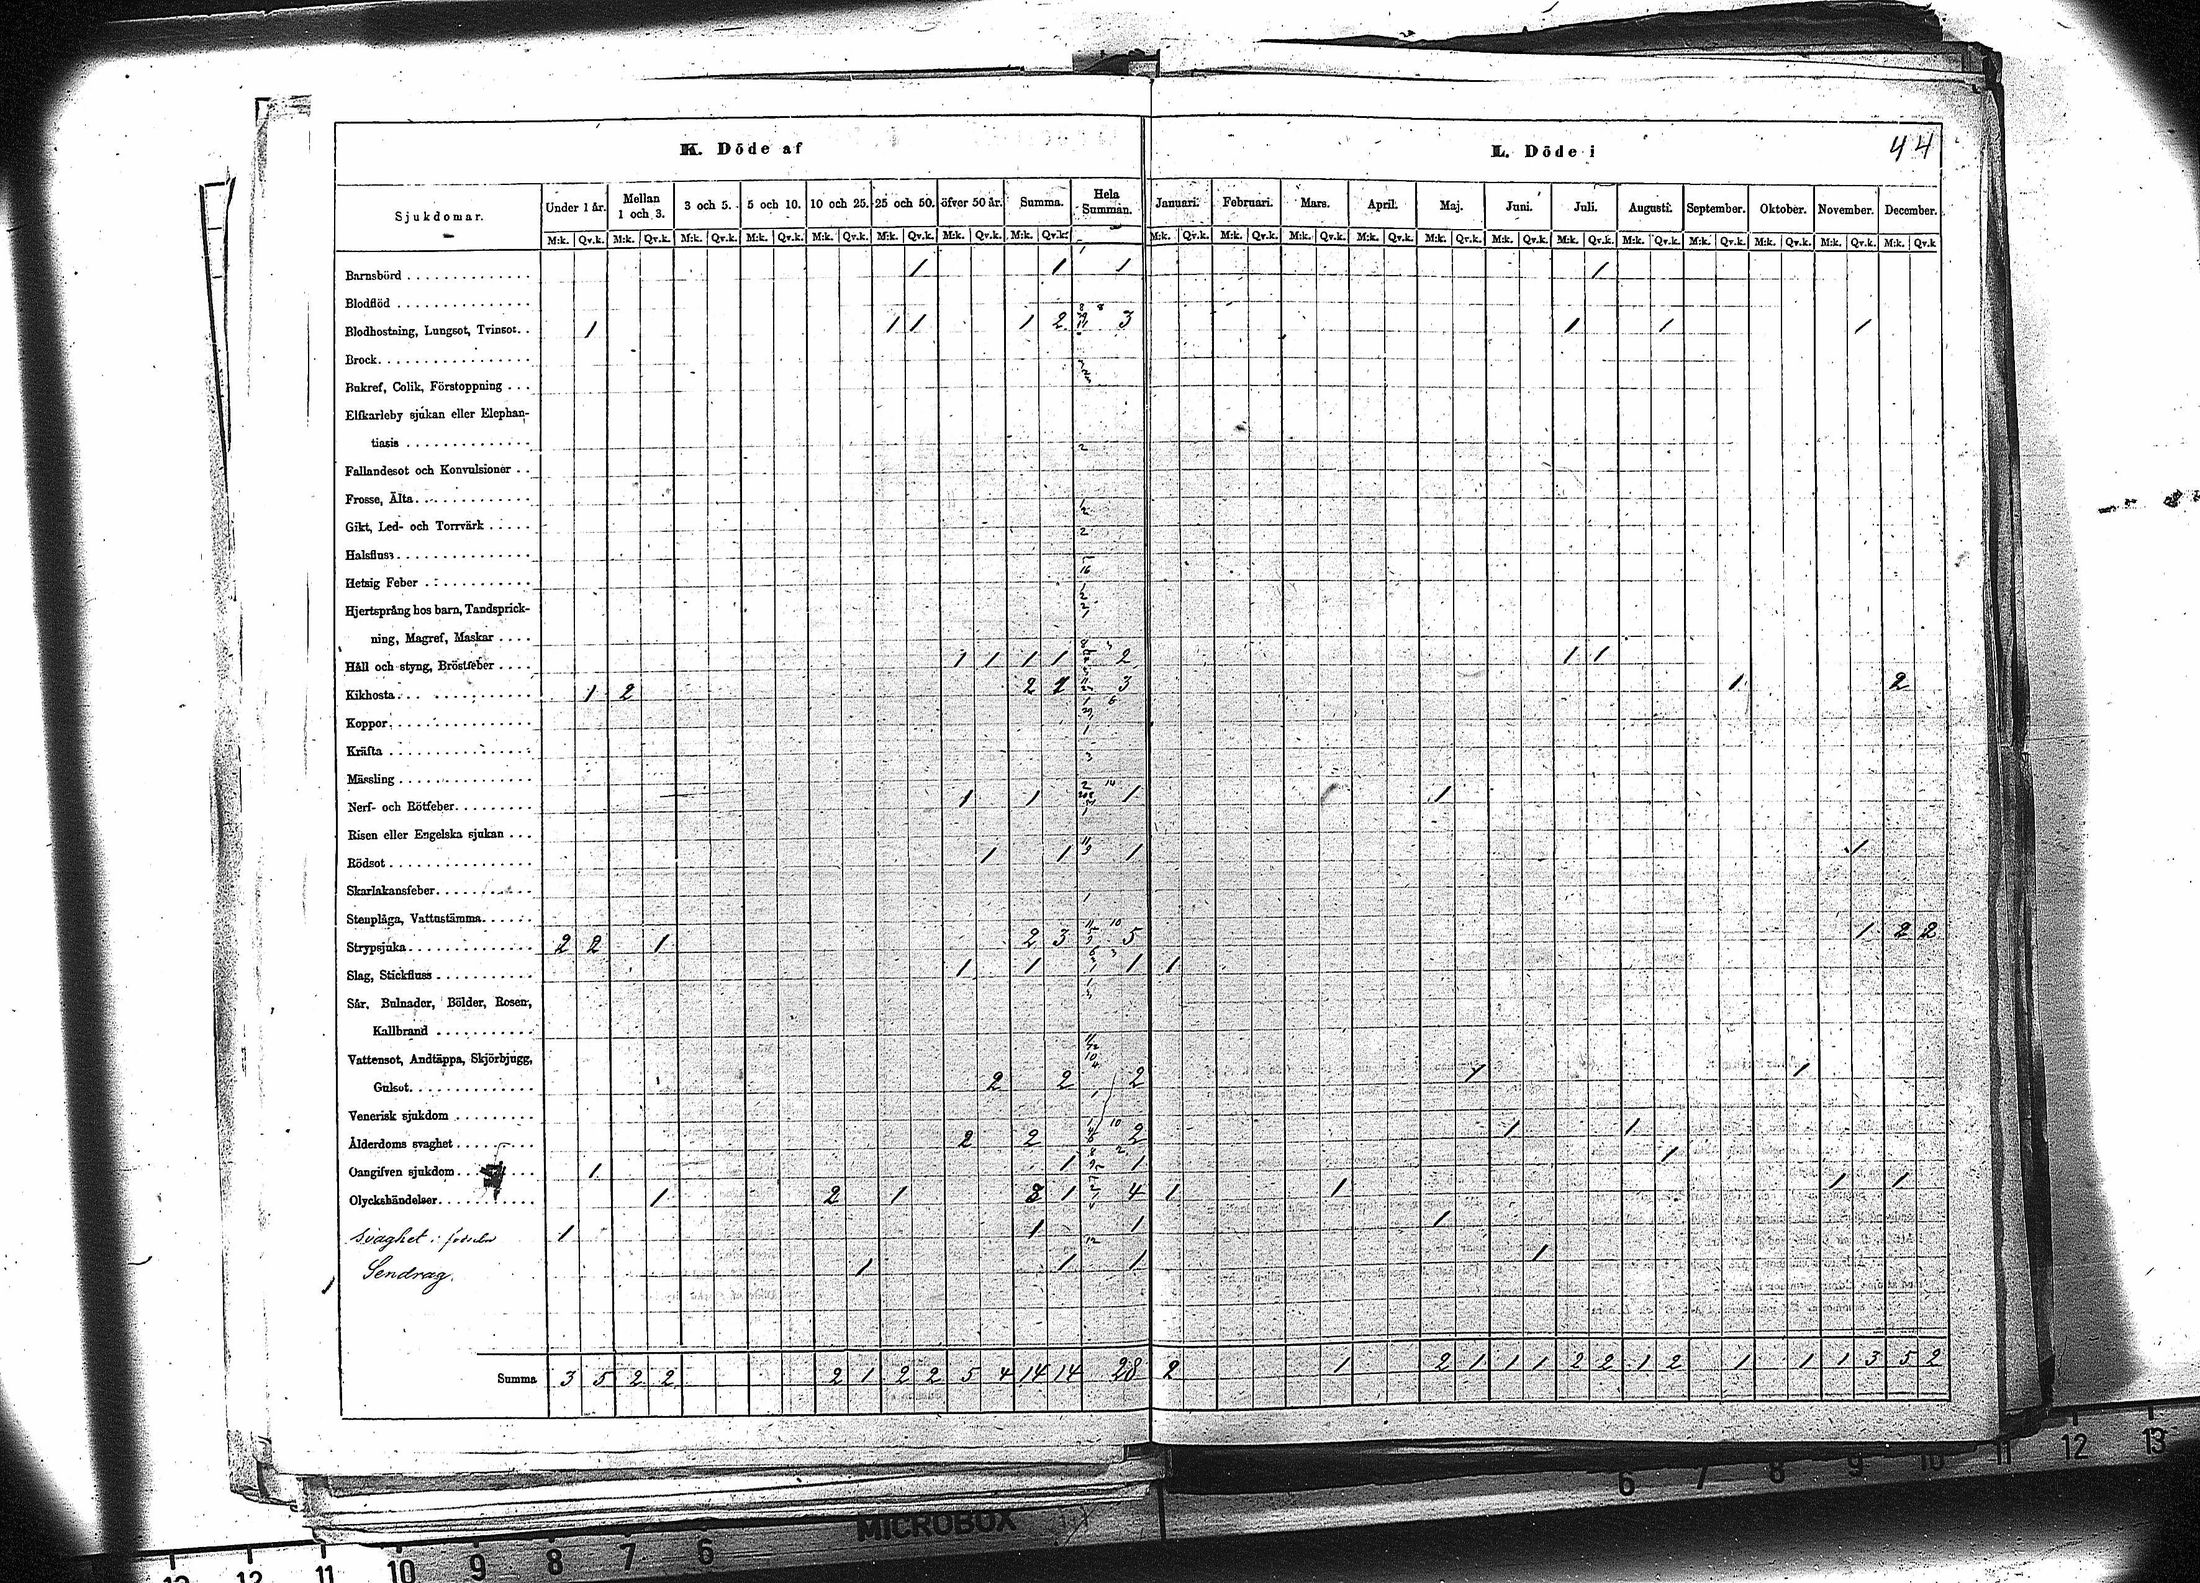 K. Döde af
L. Döde i
44
Sjukdomar. Under 1 år. Mellan 1 och 3. 3 och 5. 5 och 10. 10 och 25. 25 och 50. öfver 50 år. Summa. Hela Summan. Januari. Februari. Mars. April. Maj. Juni. Juli. Augusti. September. Oktober. November. December.
M:k. Qv.k. M:k. Qv.k. M:k. Qv.k. M:k. Qv.k. M:k. Qv.k. M:k. Qv.k. M:k. Qv.k. M:k. Qv.k. M:k. Qv.k. M:k. Qv.k. M:k. Qv.k. M:k. Qv.k. M:k. Qv.k. M:k. Qv.k. M:k. Qv.k. M:k. Qv.k. M:k. Qv.k. M:k. Qv.k. M:k. Qv.k. M:k. Qv.k
Barnsbörd 1 1 1 1
Blodflöd
Blodhostning, Lungsot, Tvinsot. 1 1 1 1 2 3 1 1 1
Brock
Bukref, Colik, Förstoppning
Elfkarleby sjukan eller Elephan-
tiasis
Fallandesot och Konvulsioner
Frosse, Älta
Gikt, Led- och Torrvärk
Halsfluss
Hetsig Feber
Hjertsprång hos barn, Tandsprick-
ning, Magref, Maskar
Håll och styng, Bröstfeber 1 1 1 1 2 1 1
Kikhosta 1 2 2 1 3 1 2
Koppor
Kräfta
Mässling
Nerf- och Rötfeber 1 1 1 1
Risen eller Engelska sjukan
Rödsot 1 1 1 1
Skarlakansfeber
Stenplåga, Vattustämma
Strypsjuka 2 2 1 2 3 5 1 2 2
Slag, Stickfluss 1 1 1 1
Sår, Bulnader, Bölder, Rosen,
Kallbrand
Vattensot, Andtäppa, Skjörbjugg,
Gulsot 2 2 2 1 1
Venerisk sjukdom
Ålderdoms svaghet 2 2 2 1 1
Oangifven sjukdom 1 1 1 1
Olyckshändelser 1 2 1 3 1 4 1 1 1 1
Svaghet i födseln 1 1 1 1
Sendrag. 1 1 1 1
Summa 3 5 2 2 2 1 2 2 5 4 14 14 28 2 1 2 1 1 1 2 2 1 2 1 1 1 3 5 2
MICROBOX
12 11 10 9 8 7 6
6 7 8 9 10 11 12 13